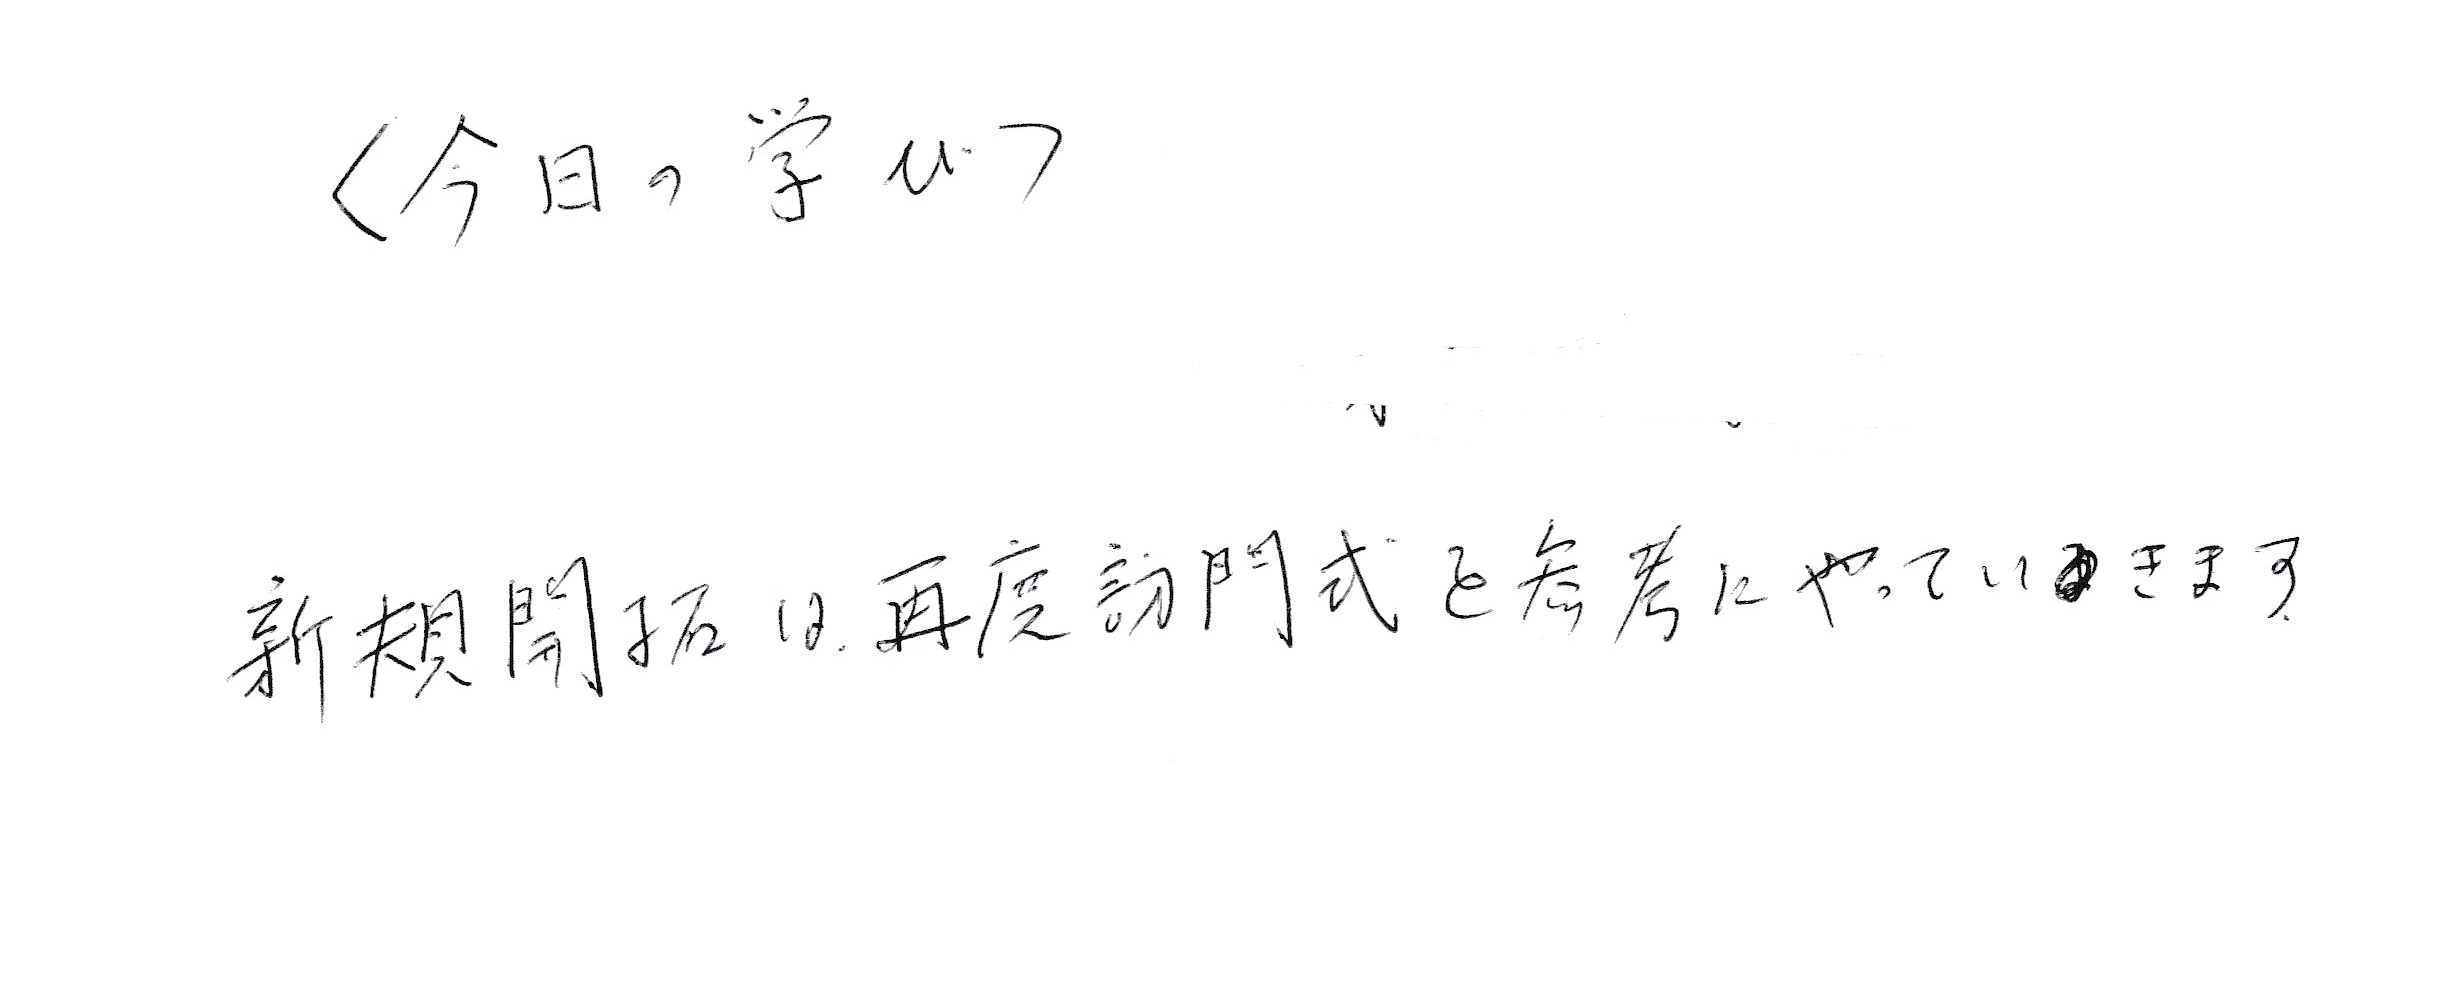 〈今日の学び〉
新規開拓は、再度訪問式を参考にやっていきます